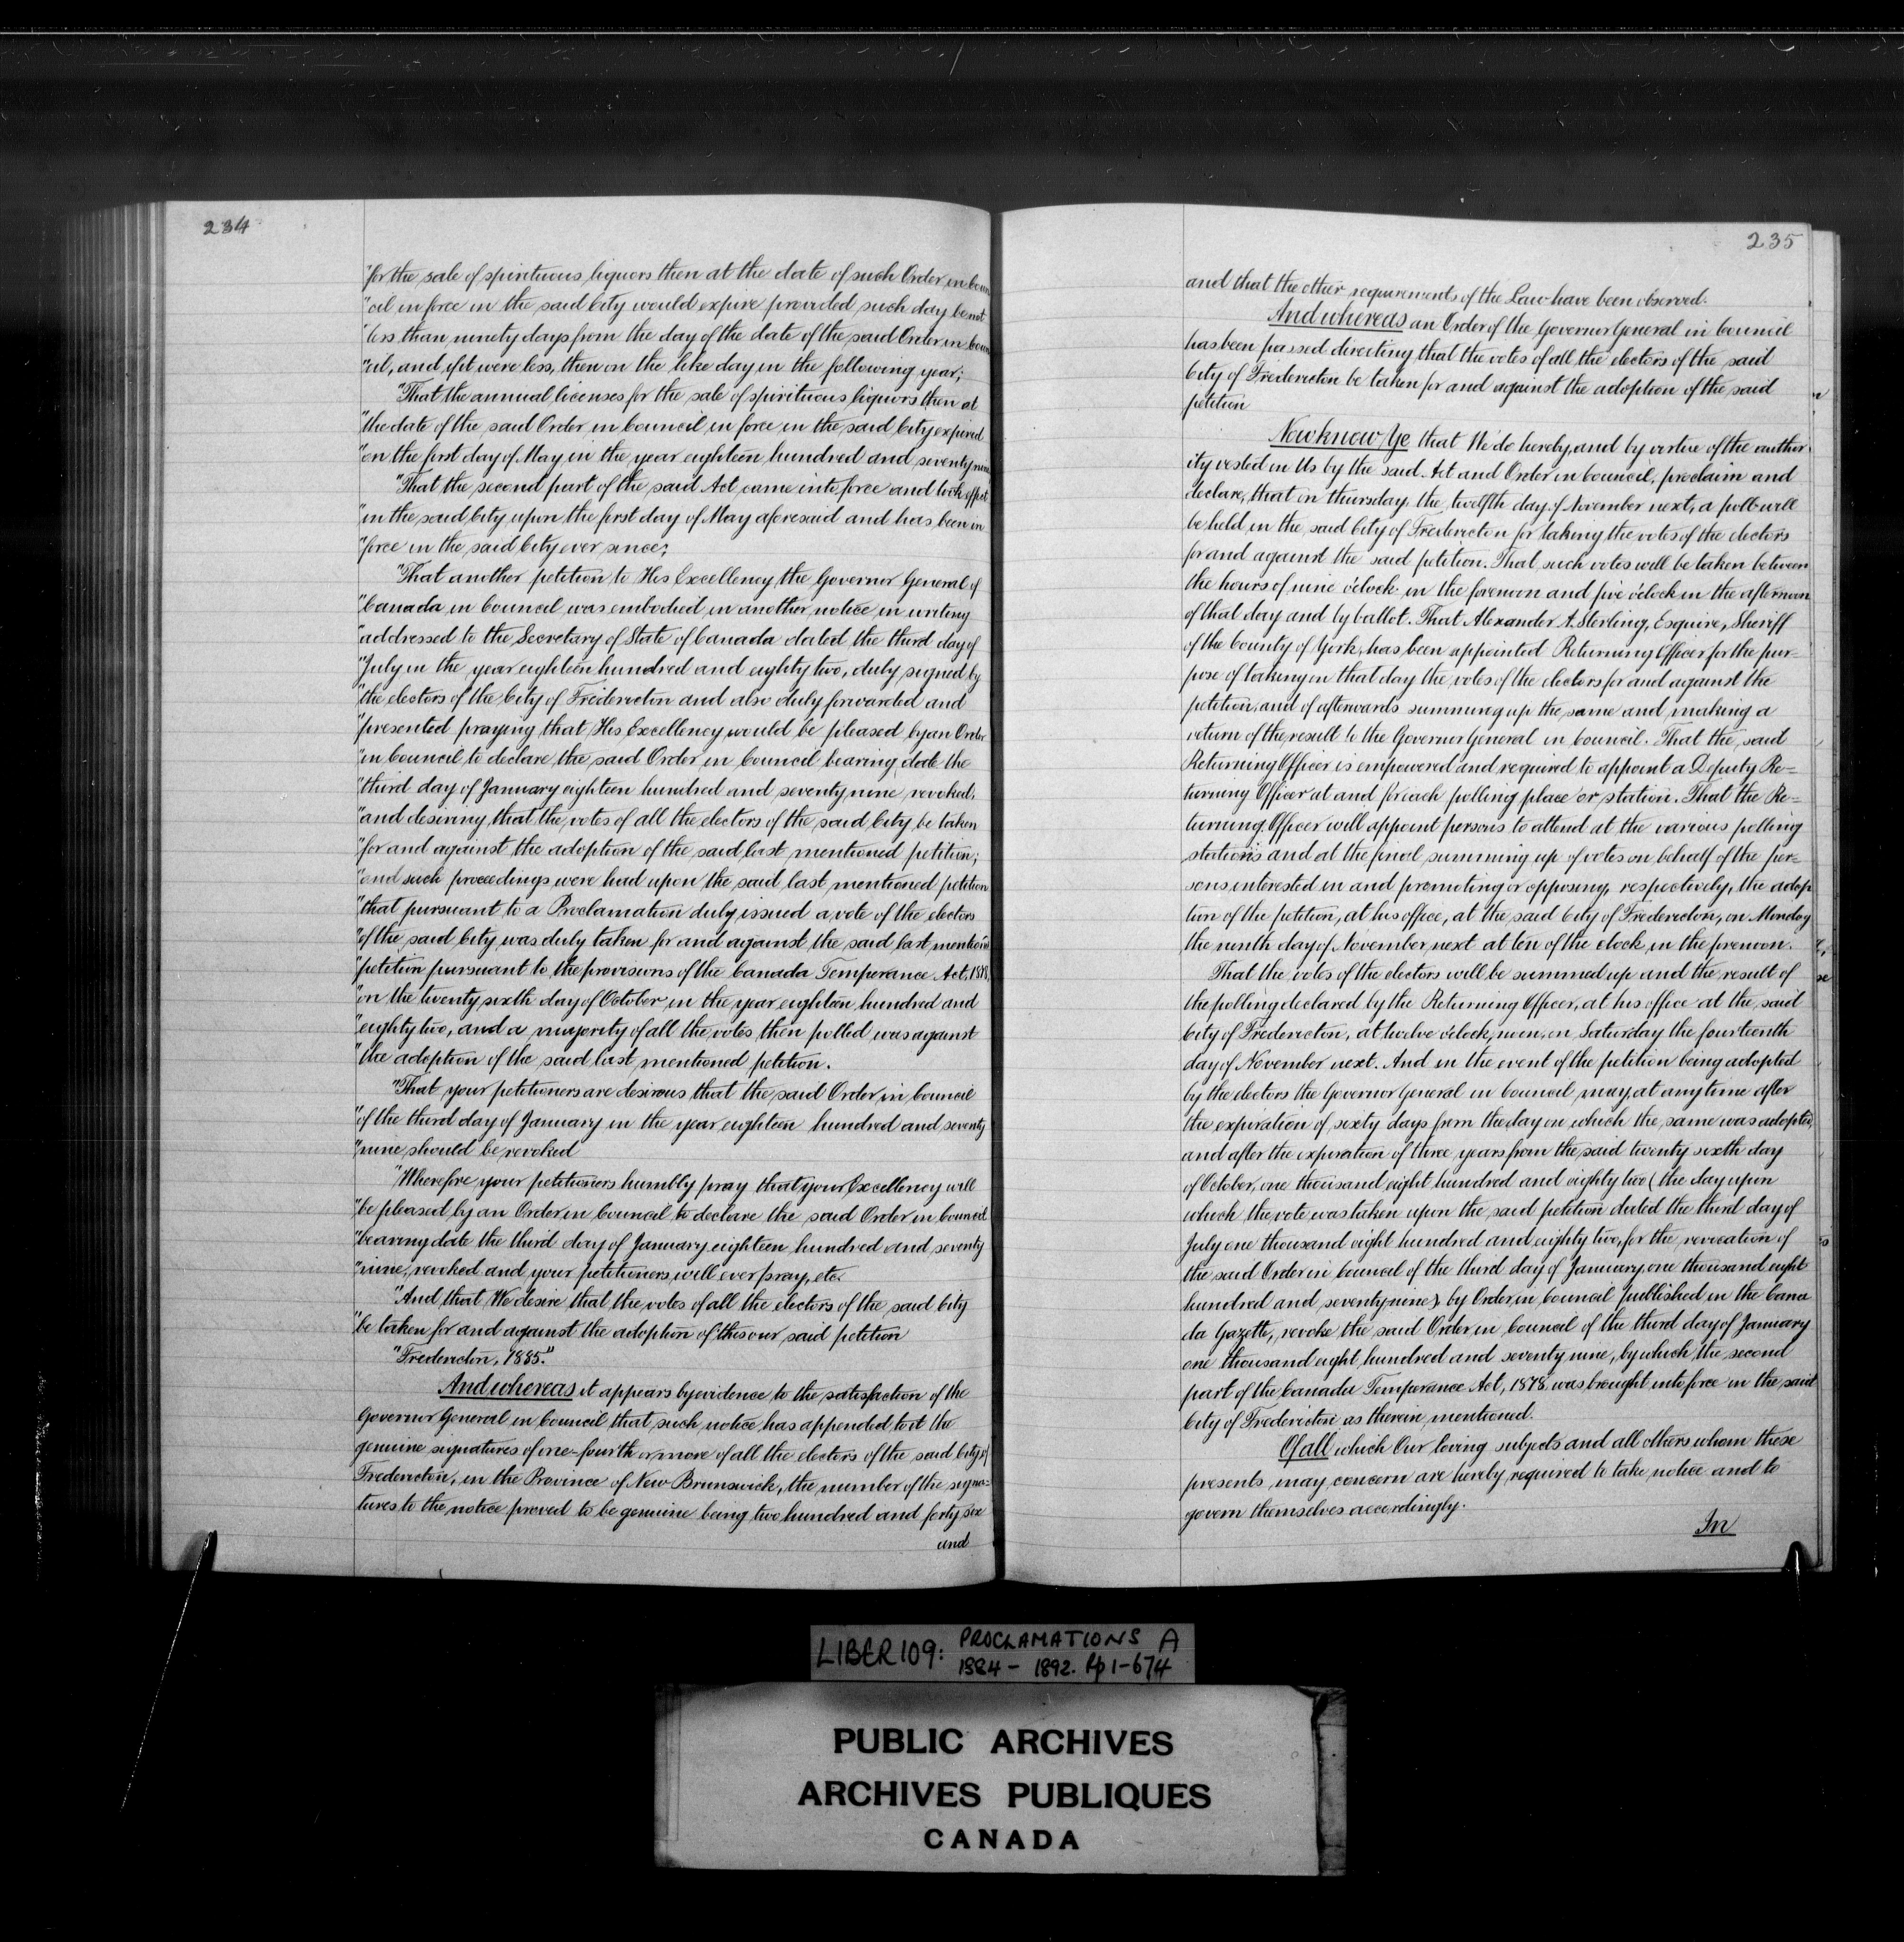 234
"for the sale of spirituous liquors then at the date of such Order in Coun
"cil in force in the said City would expire provided such day be not
"less than ninety days from the day of the date of the said Order in Coun
"cil, and if it were less, then on the like day in the following year;
"That the annual licenses for the sale of spirituous liquors then at
"the date of the said Order in Council in force in the said City expired
"on the first day of May in the year eighteen hundred and seventy nine
"That the second part of the said Act came into force and took effect
"in the said City upon the first day of May aforesaid and has been in
"force in the said City ever since;
"That another petition to His Excellency the Governor General of
"Canada in Council was embodied in another notice in writing
"addressed to the Secretary of State of Canada dated the third day of
"July in the year eighteen hundred and eighty two, duly signed by
"the electors of the City of Fredericton and also duly forwarded and
"presented praying that His Excellency would be pleased by an Order
"in Council to declare the said Order in Council bearing date the
"third day of January eighteen hundred and seventy nine revoked.
"and desiring that the votes of all the electors of the said City be taken
"for and against the adoption of the said last mentioned petition;
"and such proceedings were had upon the said last mentioned petition
"that pursuant to a Proclamation duly issued a vote of the electors
"of the said City was duly taken for and against the said last mention'd
"petition pursuant to the provisions of the Canada Temperance Act, 1878,
"on the twenty sixth day of October in the year eighteen hundred and
"eighty two, and a majority of all the votes then polled was against
"the adoption of the said last mentioned petition.
"That your petitioners are desirous that the said Order in Council
"of the third day of January in the year eighteen hundred and seventy
"nine should be revoked
"Wherefore your petitioners humbly pray that your Excellency will
"be pleased by an Order in Council to declare the said Order in Council
"bearing date the third day of January eighteen hundred and seventy
"nine, revoked and your petitioners will ever pray, etc.
"And that We desire that the votes of all the electors of the said City
"be taken for and against the adoption of this our said petition
"Fredericton, 1885."
And whereas it appears by evidence to the satisfaction of the
Governor General in Council that such notice has appended to it the
genuine signatures of one-fourth or more of all the electors of the said City of
Fredericton, in the Province of New Brunswick, the number of the signa-
tures to the notice proved to be genuine being two hundred and forty six
and
235
and that the other requirements of the Law have been observed.
And whereas an Order of the Governor General in Council
has been passed directing that the votes of all the electors of the said
City of Fredericton be taken for and against the adoption of the said
petition
Now know Ye that We do hereby, and by virtue of the author
ity vested in Us by the said Act and Order in Council, proclaim and
declare, that on thursday, the twelfth day of November next, a poll will
be held in the said City of Fredericton for taking the votes of the electors
for and against the said petition. That such votes will be taken between
the hours of nine o'clock in the forenoon and five o'clock in the afternoon
of that day and by ballot. That Alexander A. Sterling, Esquire, Sheriff
of the County of York, has been appointed Returning Officer for the pur-
pose of taking on that day the votes of the electors for and against the
petition, and of afterwards summing up the same and making a
return of the result to the Governor General in Council. That the said
Returning Officer is empowered and required to appoint a Deputy Re-
turning Officer at and for each polling place or station. That the Re-
turning Officer will appoint persons to attend at the various polling
stations and at the final summing up of votes on behalf of the per-
sons interested in and promoting or opposing, respectively, the adop
tion of the petition, at his office, at the said City of Fredericton, on Monday
the ninth day of November next at ten of the clock in the forenoon.
That the votes of the electors will be summed up and the result of
the polling declared by the Returning Officer, at his office at the said
City of Fredericton, at twelve o'clock, noon, on Saturday the fourteenth
day of November next. And in the event of the petition being adopted
by the electors the Governor General in Council may, at any time after
the expiration of sixty days from the day on which the same was adopted,
and after the expiration of three years from the said twenty sixth day
of October, one thousand eight hundred and eighty two (the day upon
which the vote was taken upon the said petition dated the third day of
July one thousand eight hundred and eighty two, for the revocation of
the said Order in Council of the third day of January, one thousand eight
hundred and seventy nine), by Order in Council published in the Cana
da Gazette, revoke the said Order in Council of the third day of January
one thousand eight hundred and seventy nine, by which the second
part of the Canada Temperance Act, 1878 was brought into force in the said
City of Fredericton as therein mentioned.
Of all which Our loving subjects and all others whom these
presents may concern are hereby required to take notice and to
govern themselves accordingly.
In
LIBER 109: PROCLAMATIONS A
1884 - 1892. Pp 1-674
PUBLIC ARCHIVES
ARCHIVES PUBLIQUES
CANADA